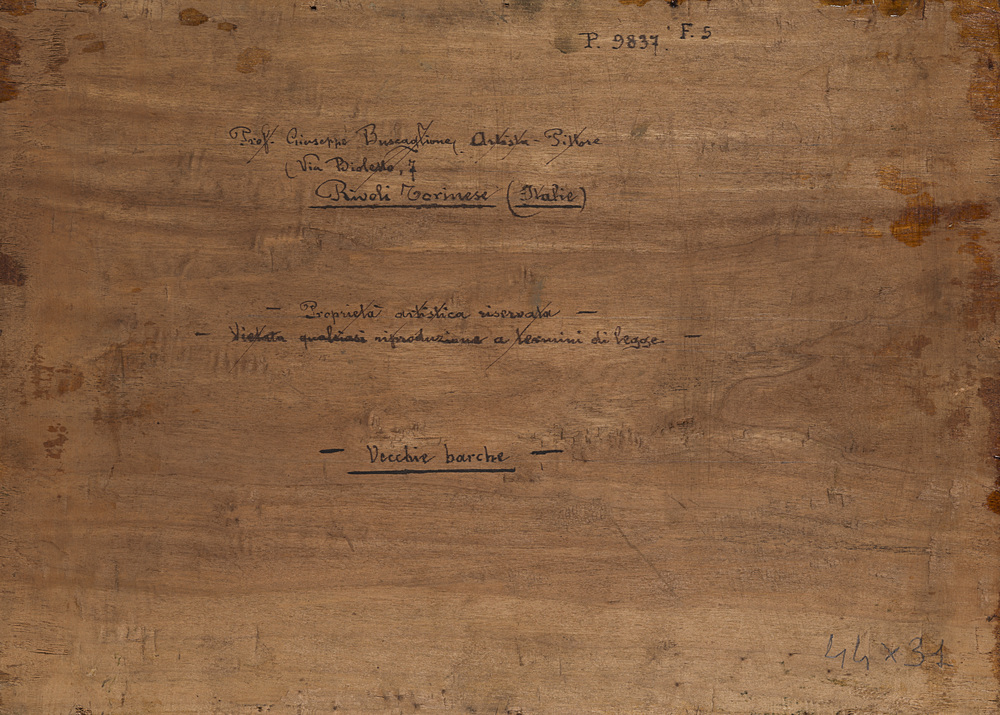 P. 9837. F. 5
Prof. Giuseppe Buscaglione, Artista-Pittore
(Via Bioletto, 7
Rivoli Torinese (Italie)
— Proprietà artistica riservata —
— Vietata qualsiasi riproduzione a termini di legge —
— Vecchie barche —
44x31